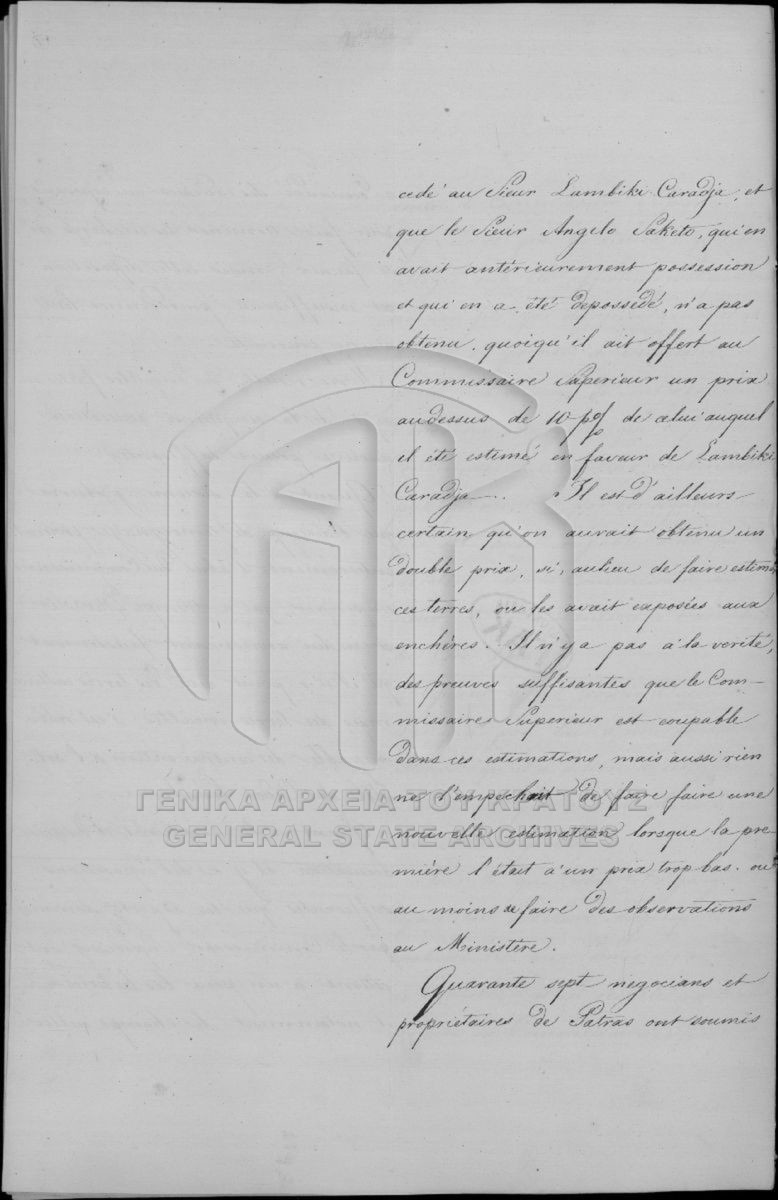 cedé au Sieur Lambiki Caradja, et
que le Sieur Angelo Saketo, qui en
avait antérieurement possession
et qui en a été depossedé, n'a pas
obtenu, quoiqu'il ait offert au
Commissaire Superieur un prix
au dessus de 10 p% de celui auquel
il été estimé en faveur de Lambiki
Caradja. Il est d'ailleurs
certain qu'on aurait obtenu un
double prix, si, au lieu de faire estimer
ces terres, on les avait exposées aux
enchères. Il n'y a pas à la verité,
des preuves suffisantes que le Com-
missaire Superieur est coupable
dans ces estimations, mais aussi rien
ne l'empechait de faire faire une
nouvelle estimation lorsque la pre-
mière l'était à un prix trop bas. ou
au moins de faire des observations
au Ministère.
Quarante sept negocians et
propriétaires de Patras ont soumis
ΓΕΝΙΚΑ ΑΡΧΕΙΑ ΤΟΥ ΚΡΑΤΟΥΣ
GENERAL STATE ARCHIVES